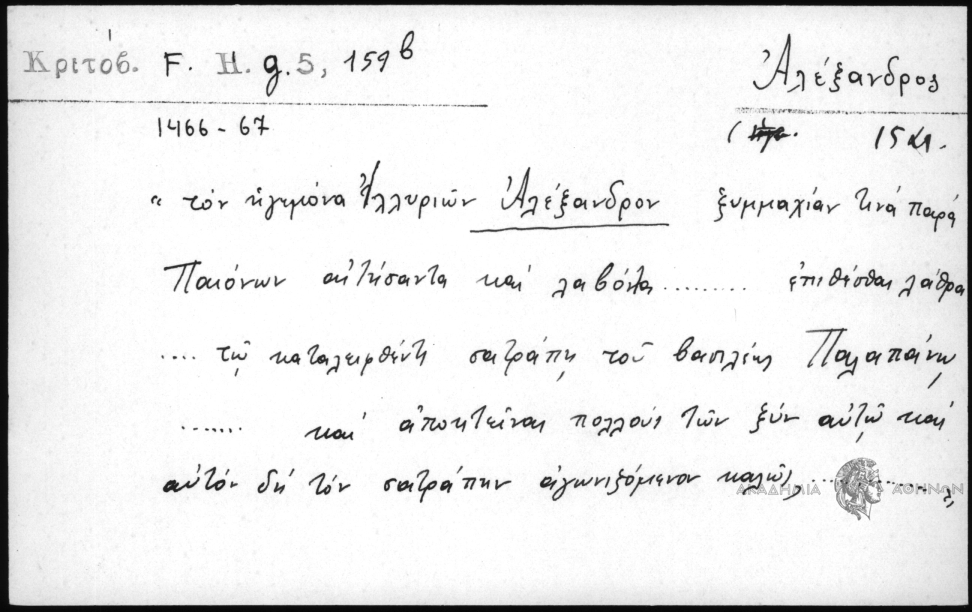 Κριτόβ. F. H. g. 5, 159 β
Ἀλέξανδρος
1466 - 67
15 αι.
" τὸν ἡγεμόνα Ἰλλυριῶν Ἀλέξανδρον ξυμμαχίαν τινά παρά
Παιόνων αἰτήσαντα καί λαβόντα ......... ἐπιθέσθαι λάθρα
.... τῷ καταλειφθέντι σατράπῃ τοῦ βασιλέως Παλαπάνῳ
....... καί ἀποκτεῖναι πολλούς τῶν ξύν αὐτῷ καί
αὐτόν δή τόν σατράπην ἀγωνιζόμενον καλῶς, ............ "
ΑΚΑΔΗΜΙΑ ΑΘΗΝΩΝ